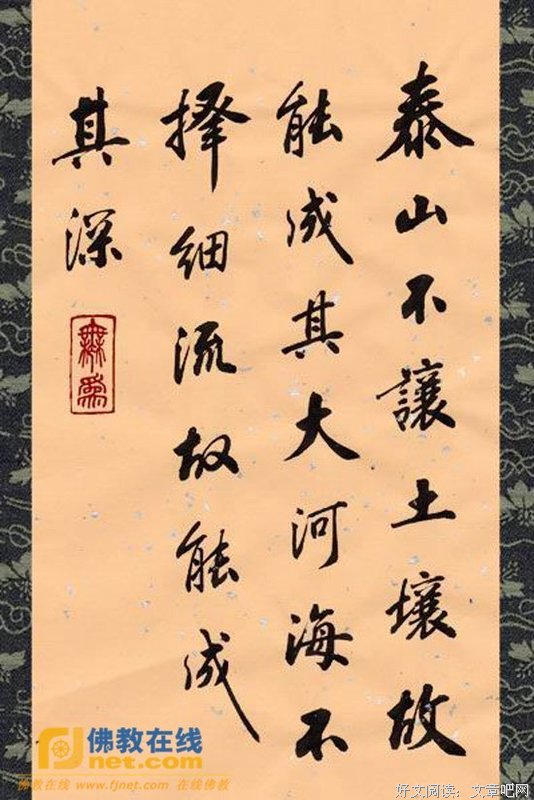 泰山不讓土壤故
能成其大河海不
择细流故能成
其深
無為
佛教在线
fjnet.com
佛教在线 www.fjnet.com 在线佛教
好文阅读：文章吧网